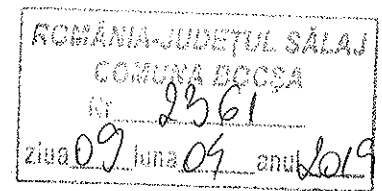 ROMÂNIA-JUDEŢUL SĂLAJ
COMUNA BOCŞA
Nr 2361
ziua 09 luna 04 anul 2019